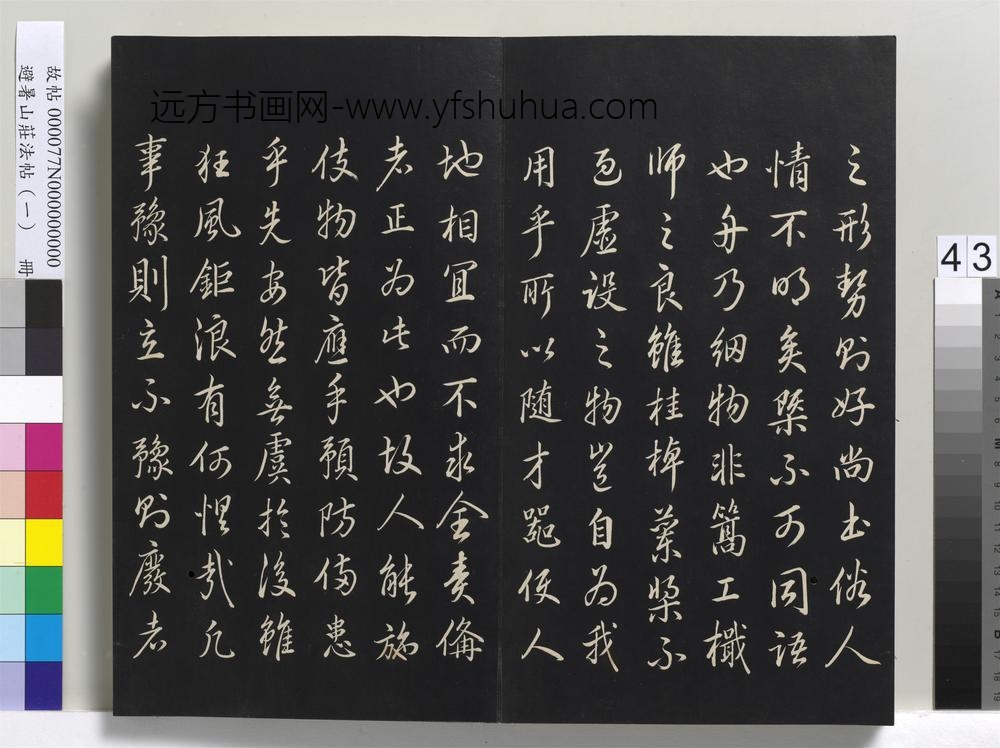 远方书画网-www.yfshuhua.com
之形勢則好尚土俗人
情不明矣槩不可同語
也舟乃細物非篙工檝
師之良雖桂棹蘭槳不
過虛設之物豈自為我
用乎所以随才器使人
地相宜而不求全責俻
者正為此也故人能施
伎物皆應手預防俻患
乎先安然無虞於後雖
狂風鉅浪有何惧哉凡
事豫則立不豫則廢者
故帖 000077N000000000
避暑山莊法帖（一） 冊
43